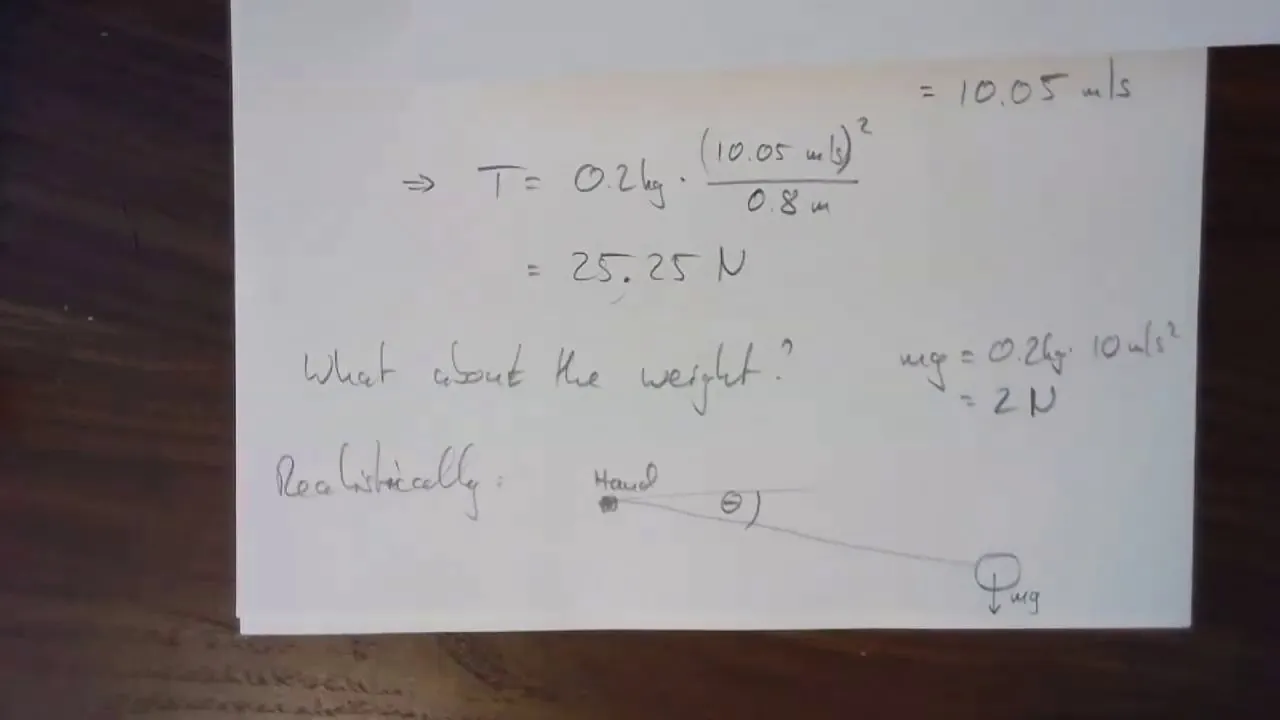 = 10.05 m/s
⇒ T = 0.2kg · (10.05 m/s)² / 0.8 m
= 25.25 N
What about the weight?
mg = 0.2kg · 10 m/s²
= 2 N
Realistically:
Hand
θ
mg